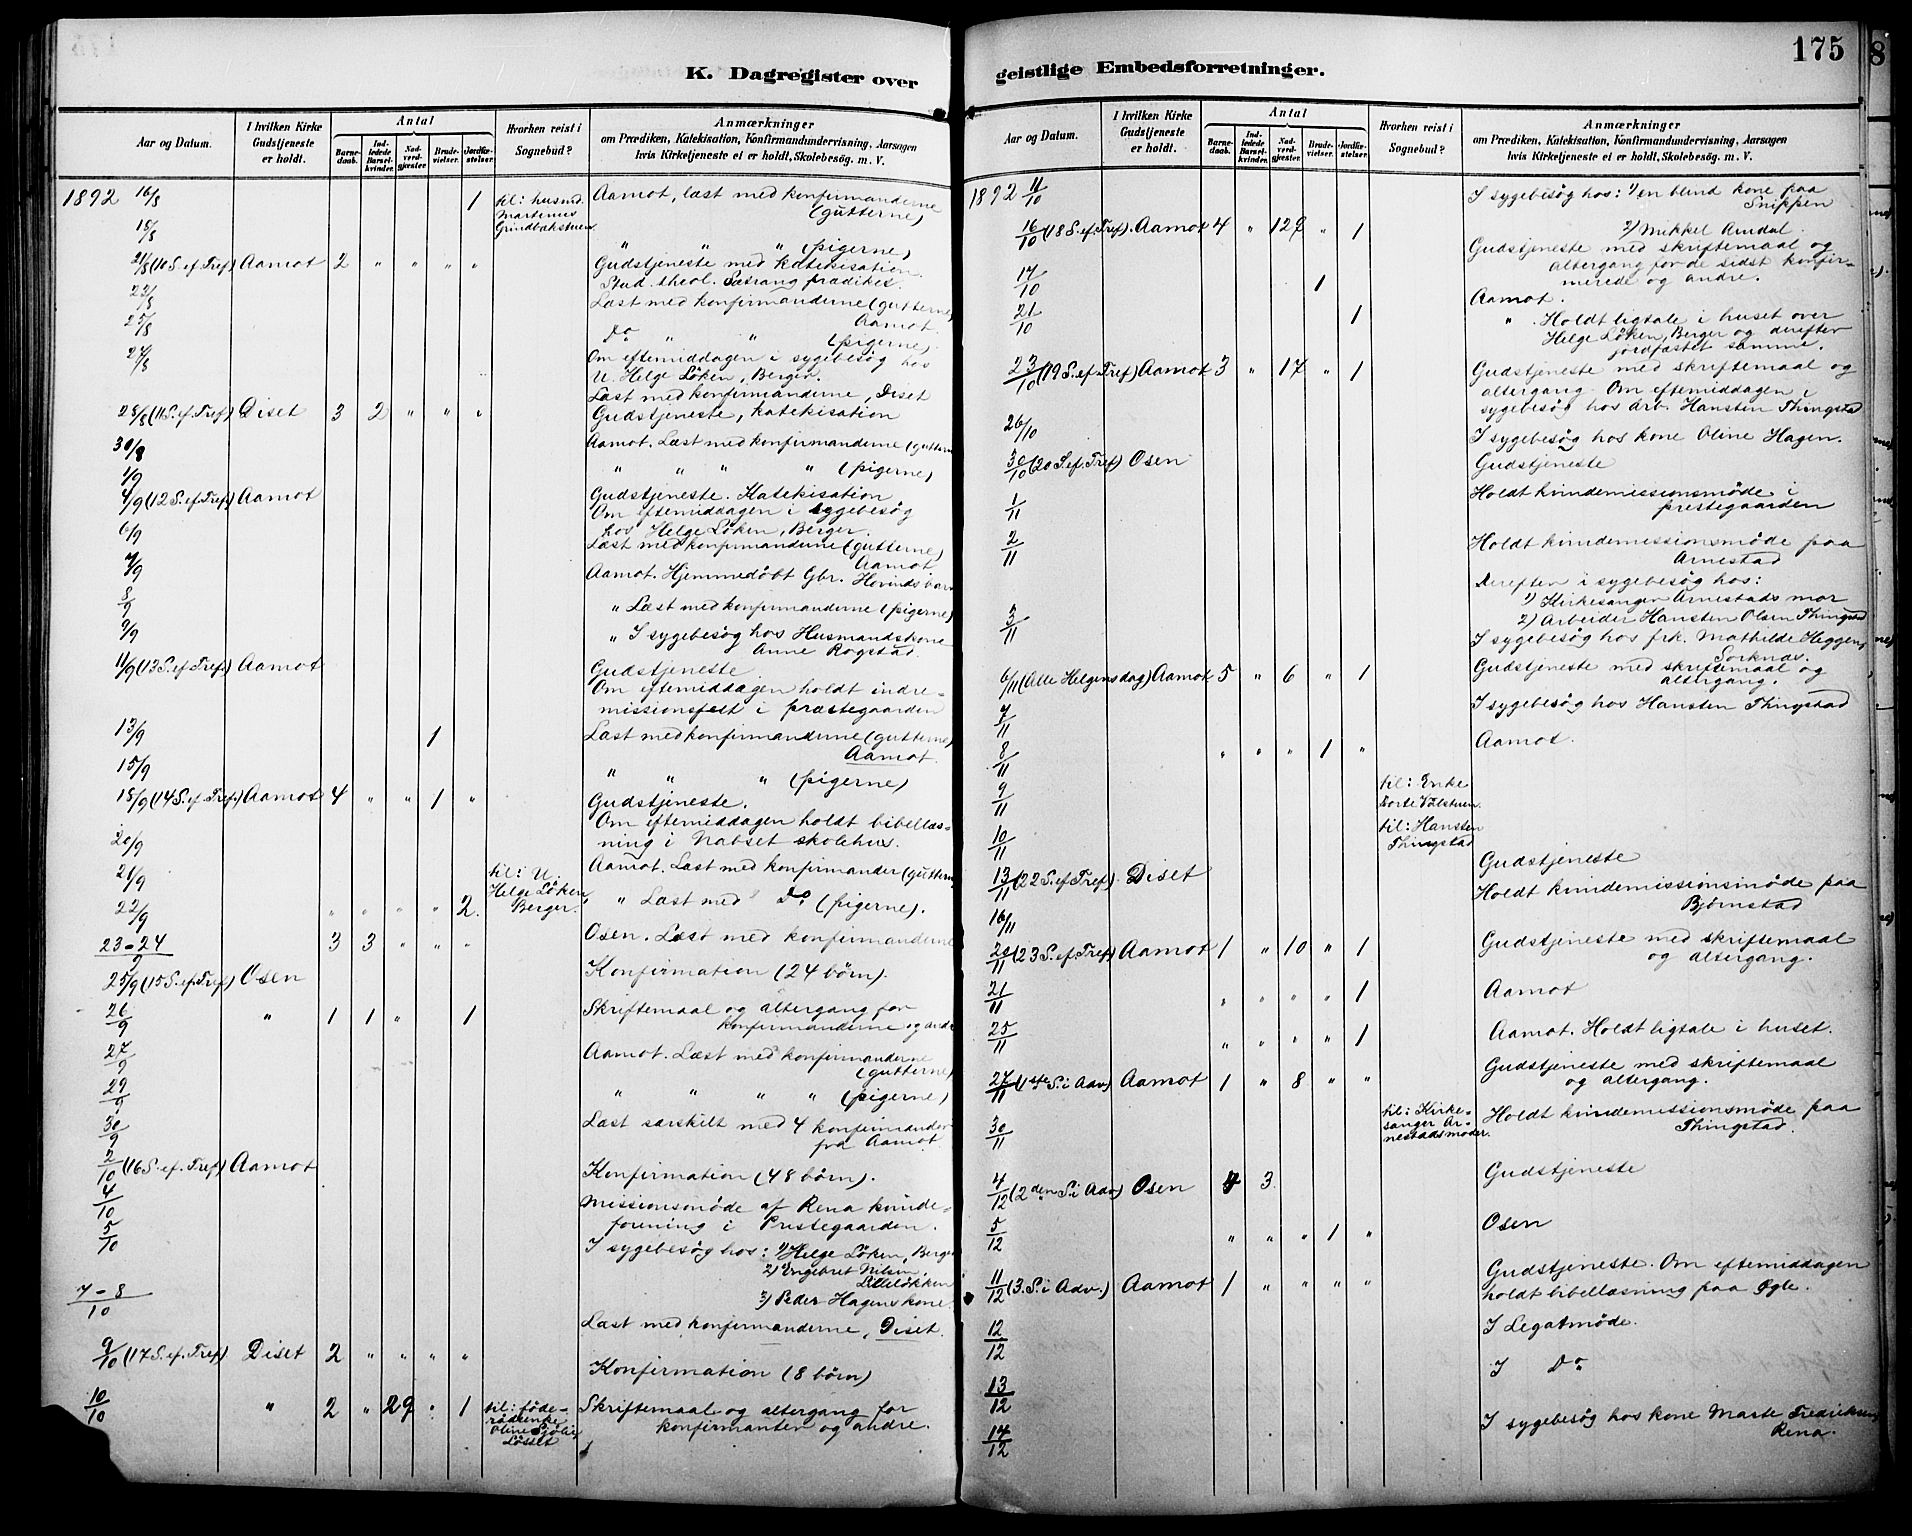 K. Dagregister over
Aar og Datum.
I hvilken Kirke Gudstjeneste er holdt.
Antal
Barnedaab.
Indledede Barselkvinder.
Nadverdgjester.
Brudevielser.
Jordfæstelser.
Hvorhen reist i Sognebud?
Anmærkninger
om Prædiken, Katekisation, Konfirmandundervisning, Aarsagen
hvis Kirketjeneste ei er holdt, Skolebesøg. m. V.
1892 16/8 1 til: husmd. Aamot, læst med konfirmanderne
Martinius (gutterne)
Grindbakstuen
18/8 " " " (pigerne)
21/8 (10 S. ef. Tref) Aamot 2 " " " " Gudstjeneste med katekisation.
Stud. theol. Sætrang prædiket.
23/8 Læst med konfirmanderne (gutterne)
Aamot
25/8 Do " " (pigerne).
27/8 Om eftemiddagen i sygebesøg hos
U. Helge Løken, Berger.
Læst med konfirmanderne, Diset
28/8 (11 S. ef. Tref) Diset 3 2 " " " Gudstjeneste, katekisation
30/8 Aamot. Læst med konfirmanderne (gutterne
1/9 " " " " (pigerne)
4/9 (12 S. ef. Tref) Aamot Gudstjeneste. Katekisation
Om eftemiddagen i sygebesøg
hos Helge Løken, Berger.
6/9 Læst med konfirmanderne (gutterne)
Aamot
7/9 Aamot. Hjemmedøbt Gbr. Hovinds barn
8/9 " Læst med konfirmanderne (pigerne)
9/9 " I sygebesøg hos Husmandskone
Anne Rogstad.
11/9 (13 S. ef. Tref.) Aamot Gudstjeneste.
Om eftemiddagen holdt indre-
missionsfest i præstegaarden
13/9 1 Læst med konfirmanderne (gutterne)
Aamot.
15/9 " " " (pigerne)
18/9 (14 S. ef. Tref.) Aamot 4 " " 1 " Gudstjeneste.
Om eftemiddagen holdt bibellæs-
ning i Nabset skolehus.
20/9 Aamot. Læst med konfirmander (gutterne
21/9 til: U.
Helge Løken,
Berger.
22/9 " " " " 2. " Læst med Do (pigerne).
23-24/9 3 3 " " " Osen. Læst med konfirmanderne
25/9 (15 S. ef. Tref) Osen Konfirmation (24 børn).
26/9 " 1 1 " 1 Skriftemaal og altergang for
konfirmanderne og andre
27/9 Aamot. Læst med konfirmanderne
(gutterne)
29/9 " " " " (pigerne)
30/9 Læst særskilt med 4 konfirmander
fra Aamot.
2/10 (16 S. ef. Tref) Aamot Konfirmation (48 børn).
4/10 Missionsmøde af Rena kvinde-
forening i Prestegaarden.
5/10 I sygebesøg hos: 1) Helge Løken, Berger
2) Engebret Nilsen,
Lilleløkken
3) Peder Hagens kone.
7-8/10 Læst med konfirmanderne, Diset.
9/10 (17 S. ef. Tref) Diset 2 " " " " Konfirmation (8 børn)
10/10 " 2 " 29 " 1 til: føde- Skriftemaal og altergang for
rådsenke konfirmanter og andre.
Oline Sjøli
Løsset
geistlige Embedsforretninger.
175
Aar og Datum.
I hvilken Kirke Gudstjeneste er holdt.
Antal
Barnedaab.
Indledede Barselkvinder.
Nadverdgjester.
Brudevielser.
Jordfæstelser.
Hvorhen reist i Sognebud?
Anmærkninger
om Prædiken, Katekisation, Konfirmandundervisning, Aarsagen
hvis Kirketjeneste ei er holdt, Skolebesøg. m. V.
1892 11/10 I sygebesøg hos: 1) en blind kone paa
Snippen
2) Mikkel Amdal.
16/10 (18 S. ef. Tref). Aamot 4 " 129 " 1 Gudstjeneste med skriftemaal og
altergang for de sidst konfir-
merede og andre.
17/10 1 Aamot.
21/10 1 " Holdt ligtale i huset over
Helge Løken, Berger og derefter
jordfæstet samme.
23/10 (19 S. ef Tref) Aamot 3 " 17 " 1 Gudstjeneste med skriftemaal og
altergang. Om eftemiddagen i
sygebesøg hos Arb. Hansten Thingstad
26/10 I sygebesøg hos kone Oline Hagen.
30/10 (20 S. ef. Tref) Osen Gudstjeneste
1/11 Holdt kvindemissionsmøde i
prestegaarden
2/11 Holdt kvindemissionsmøde paa
Arnestad
Dereften i sygebesøg hos:
1) Kirkesanger Arnestads mor
2) Arbeider Hansten Olsen Thingstad
3/11 I sygebesøg hos frk. Mathilde Heggen,
Sorknæs.
6/11 (Alle Helgensdag) Aamot 5 " 6 " 1 Gudstjeneste med skriftemaal og
altergang.
7/11 I sygebesøg hos Hansten Thingstad
8/11 " " " 1 " Aamot.
9/11 til: Enke
Dorte
10/11 til: Hansten
Thingstad
13/11 (22 S. ef Tref) Diset Gudstjeneste
16/11 Holdt kvindemissionsmøde paa
Bjørnstad
20/11 (23 S. ef. Tref) Aamot 1 " 10 " 1 Gudstjeneste med skriftemaal
og altergang.
21/11 " " " " 1 Aamot
25/11 " " " " 1 Aamot. Holdt ligtale i huset.
27/11 (1ste S. i Adv) Aamot 1 " 8 " " Gudstjeneste med skriftemaal
og altergang.
30/11 til: Kirke- Holdt kvindemissionsmøde paa
sanger Ar- Thingstad.
nestads moder.
4/12 (2den S. i Adv) Osen 3. Gudstjeneste
5/12 " " " 1 " Osen
11/12 (3. S. i Adv.) Aamot 1 " " " " Gudstjeneste. Om eftemiddagen
holdt bibellæsning paa Øgle.
12/12 I Legatmøde.
13/12 I Do
14/12 I sygebesøg hos kone Marte Fredriksen
Rena.